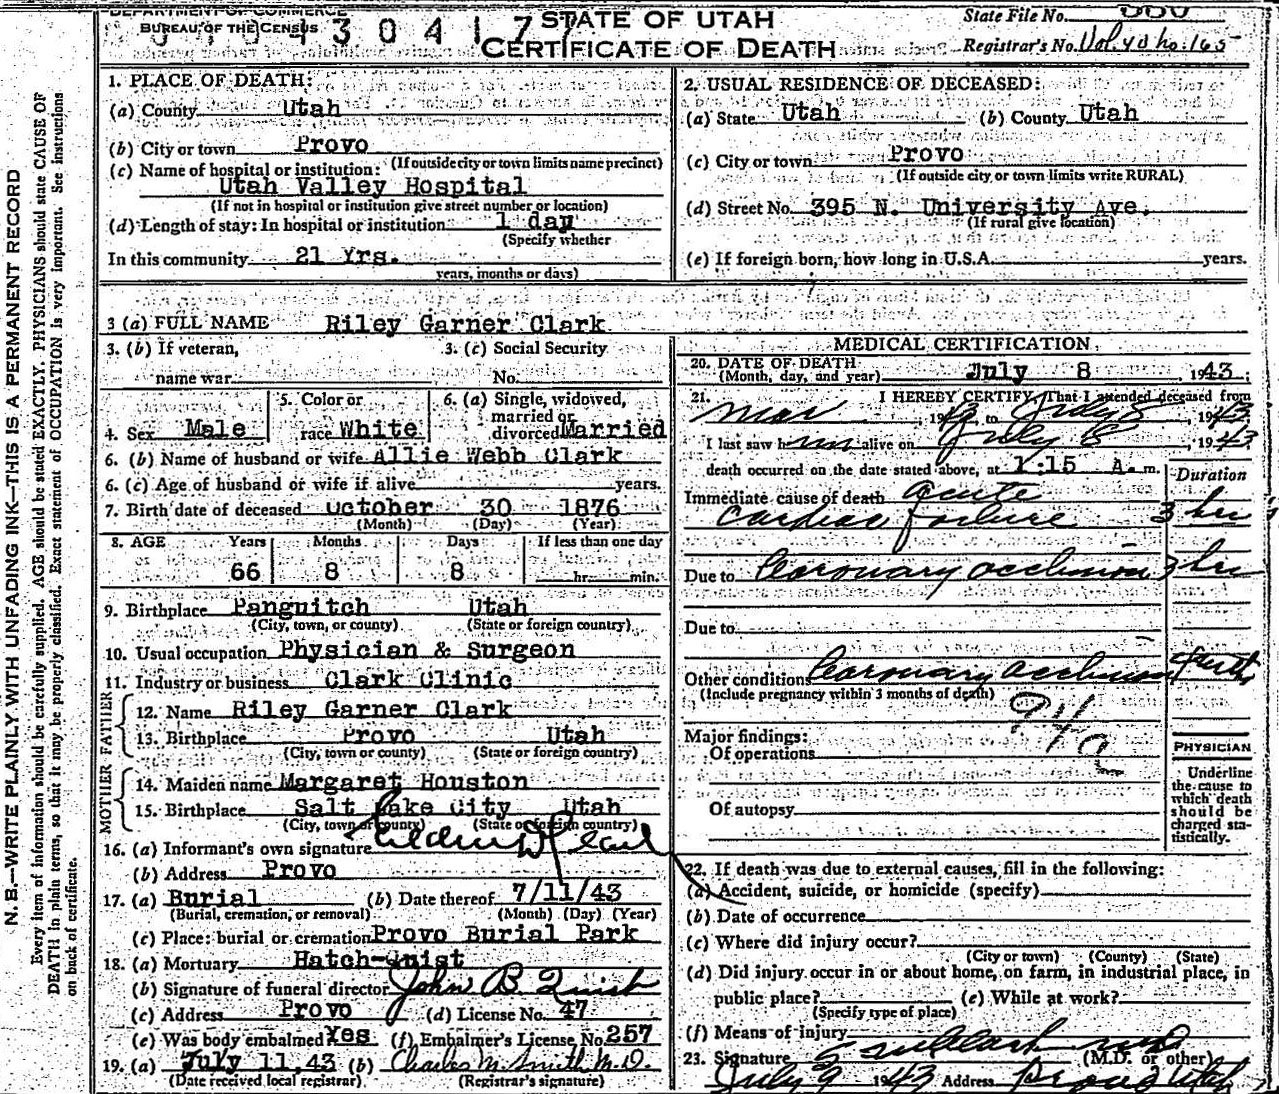 DEPARTMENT OF COMMERCE
BUREAU OF THE CENSUS
STATE OF UTAH
CERTIFICATE OF DEATH
State File No.
Registrar's No. Vol. 40 no. 165
N. B.—WRITE PLAINLY WITH UNFADING INK—THIS IS A PERMANENT RECORD
Every item of information should be carefully supplied. AGE should be stated EXACTLY. PHYSICIANS should state CAUSE OF
DEATH in plain terms, so that it may be properly classified. Exact statement of OCCUPATION is very important. See instructions
on back of certificate.
1. PLACE OF DEATH:
(a) County Utah
(b) City or town Provo
(If outside city or town limits name precinct)
(c) Name of hospital or institution:
Utah Valley Hospital
(If not in hospital or institution give street number or location)
(d) Length of stay: In hospital or institution 1 day
(Specify whether
In this community 21 Yrs.
years, months or days)
2. USUAL RESIDENCE OF DECEASED:
(a) State Utah (b) County Utah
(c) City or town Provo
(If outside city or town limits write RURAL)
(d) Street No. 395 N. University Ave.
(If rural give location)
(e) If foreign born, how long in U.S.A. years.
3 (a) FULL NAME Riley Garner Clark
3. (b) If veteran, 3. (c) Social Security
name war No.
4. Sex Male 5. Color or race White 6. (a) Single, widowed, married or divorced Married
6. (b) Name of husband or wife Allie Webb Clark
6. (c) Age of husband or wife if alive years.
7. Birth date of deceased October 30 1876
(Month) (Day) (Year)
8. AGE Years Months Days If less than one day
66 8 8 hr. min.
9. Birthplace Panguitch Utah
(City, town, or county) (State or foreign country)
10. Usual occupation Physician & Surgeon
11. Industry or business Clark Clinic
FATHER
12. Name Riley Garner Clark
13. Birthplace Provo Utah
(City, town or county) (State or foreign country)
MOTHER
14. Maiden name Margaret Houston
15. Birthplace Salt Lake City Utah
(City, town or county) (State or foreign country)
16. (a) Informant's own signature
(b) Address Provo
17. (a) Burial (b) Date thereof 7/11/43
(Burial, cremation, or removal) (Month) (Day) (Year)
(c) Place: burial or cremation Provo Burial Park
18. (a) Mortuary Hatch-Quist
(b) Signature of funeral director John B. Quist
(c) Address Provo (d) License No. 47
(e) Was body embalmed Yes (f) Embalmer's License No. 257
19. (a) July 11, 43 (b) Charles M. Smith M.D.
(Date received local registrar) (Registrar's signature)
MEDICAL CERTIFICATION
20. DATE OF DEATH
(Month, day, and year) July 8, 1943;
21. I HEREBY CERTIFY, That I attended deceased from
Mar 1943, to July 8, 1943
I last saw him alive on July 8, 1943
death occurred on the date stated above, at 1:15 A. m.
Duration
Immediate cause of death acute
cardiac failure 3 hrs
Due to Coronary occlusion 3 hrs
Due to
Other conditions Coronary occlusion
(Include pregnancy within 3 months of death)
94a
Major findings:
Of operations
Of autopsy
PHYSICIAN
Underline
the cause to
which death
should be
charged sta-
tistically.
22. If death was due to external causes, fill in the following:
(a) Accident, suicide, or homicide (specify)
(b) Date of occurrence
(c) Where did injury occur?
(City or town) (County) (State)
(d) Did injury occur in or about home, on farm, in industrial place, in
public place? (e) While at work?
(Specify type of place)
(f) Means of injury
23. Signature (M.D. or other)
July 9 1943 Address Provo Utah